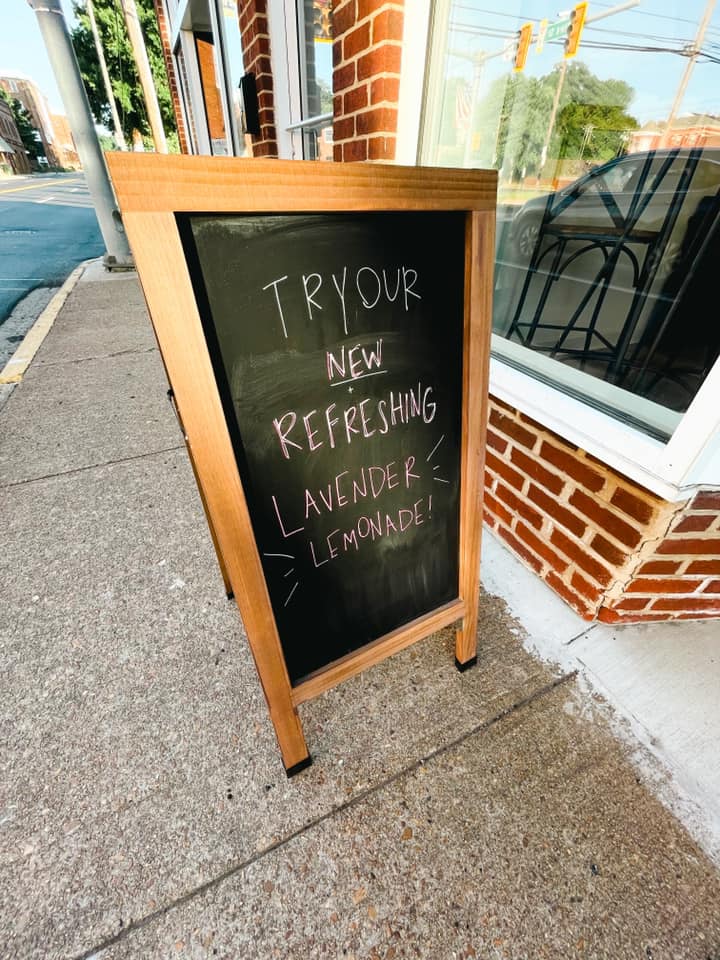 TRY OUR
NEW
+
REFRESHING
LAVENDER
LEMONADE!